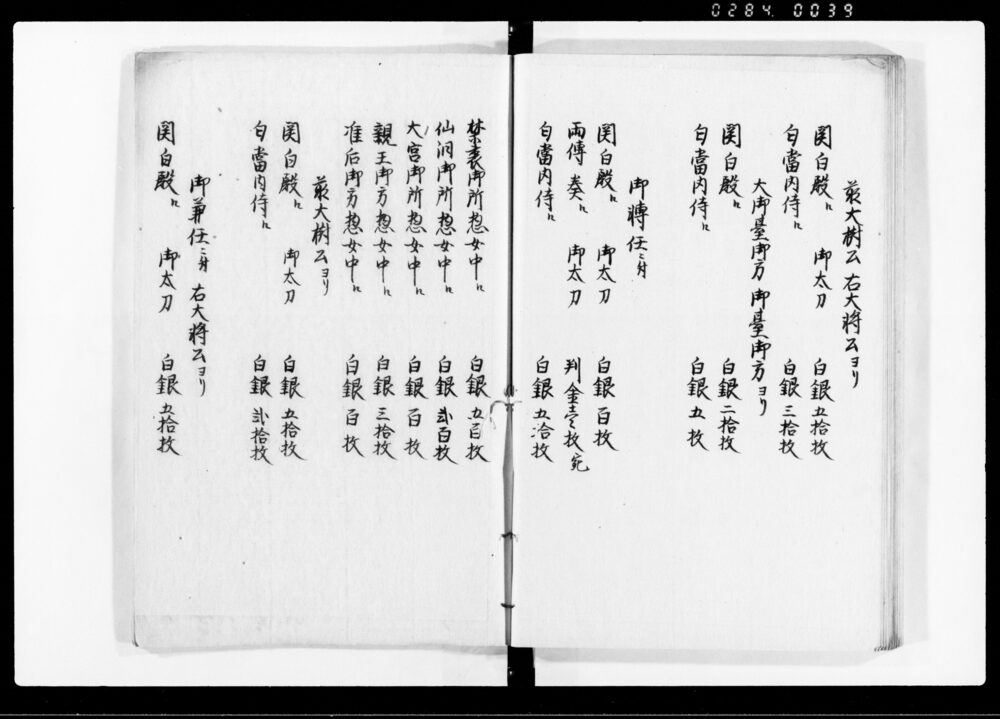 0284 0039
前大樹公 右大将公ヨリ
関白殿江 御太刀 白銀五拾枚
勾當内侍江 白銀三拾枚
大御臺御方 御臺御方ヨリ
関白殿江 白銀二拾枚
勾當内侍江 白銀五枚
御轉任ニ付
関白殿江 御太刀 白銀百枚
両傳奏江 御太刀 判金壱枚宛
勾當内侍江 白銀五拾枚
禁裏御所惣女中江 白銀五百枚
仙洞御所惣女中江 白銀弐百枚
大宮御所惣女中江 白銀百枚
親王御方惣女中江 白銀三拾枚
准后御方惣女中江 白銀百枚
前大樹公ヨリ
関白殿江 御太刀 白銀五拾枚
勾當内侍江 白銀弐拾枚
御兼任ニ付 右大将公ヨリ
関白殿江 御太刀 白銀五拾枚